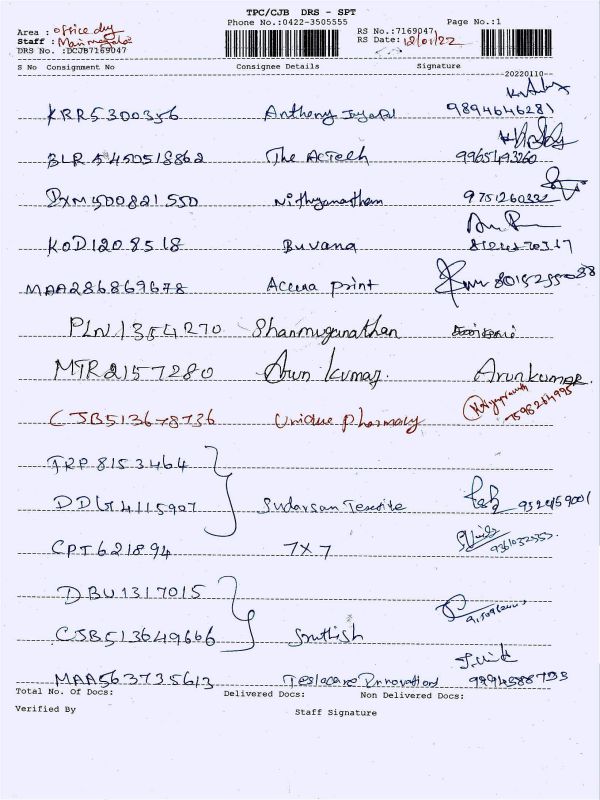 TPC/CJB DRS - SPT
Phone No.:0422-3505555 Page No.:1
Area : office dly RS No.:7169047
Staff : RS Date: 12/01/22
DRS No. :DCJB7169047
S No Consignment No Consignee Details Signature
20220110
KRR5300356 Anthony 9894646281
BLR5450518862 The AcTech 9965493260
BXM500821550 Nithyanantham 9751260332
KOD1208518 Buvana
MAA286869678 Accura print 8015255038
PLN1354270 Shanmuganathan
MTR2157280 Arun kumar. Arunkumar.
CJB513678736 Unique pharmacy
TRP8153464
DDG4115907 Sudarsan Textile
CPT621894 7x7
DBU1317015
CJB513649666
MAA563735613 Teslacare Innovations 9894588755
Total No. Of Docs: Delivered Docs: Non Delivered Docs:
Verified By Staff Signature